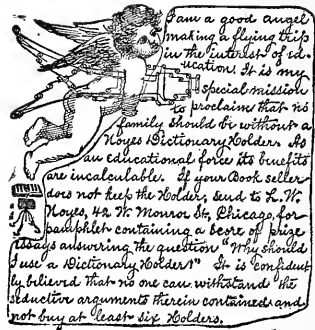 I am a good angel
making a flying trip
in the interest of ed-
ucation. It is my
special mission
to proclaim that no
family should be without a
Noyes Dictionary Holder. As
an educational force its benefits
are incalculable. If your Book seller
does not keep the Holder, send to L. W.
Noyes, 42 W. Monroe St., Chicago, for
pamphlet containing a score of prize
essays answering the question "Why should
I use a Dictionary Holder?" It is confident-
ly believed that no one can withstand the
seductive arguments therein contained and
not buy at least six Holders.